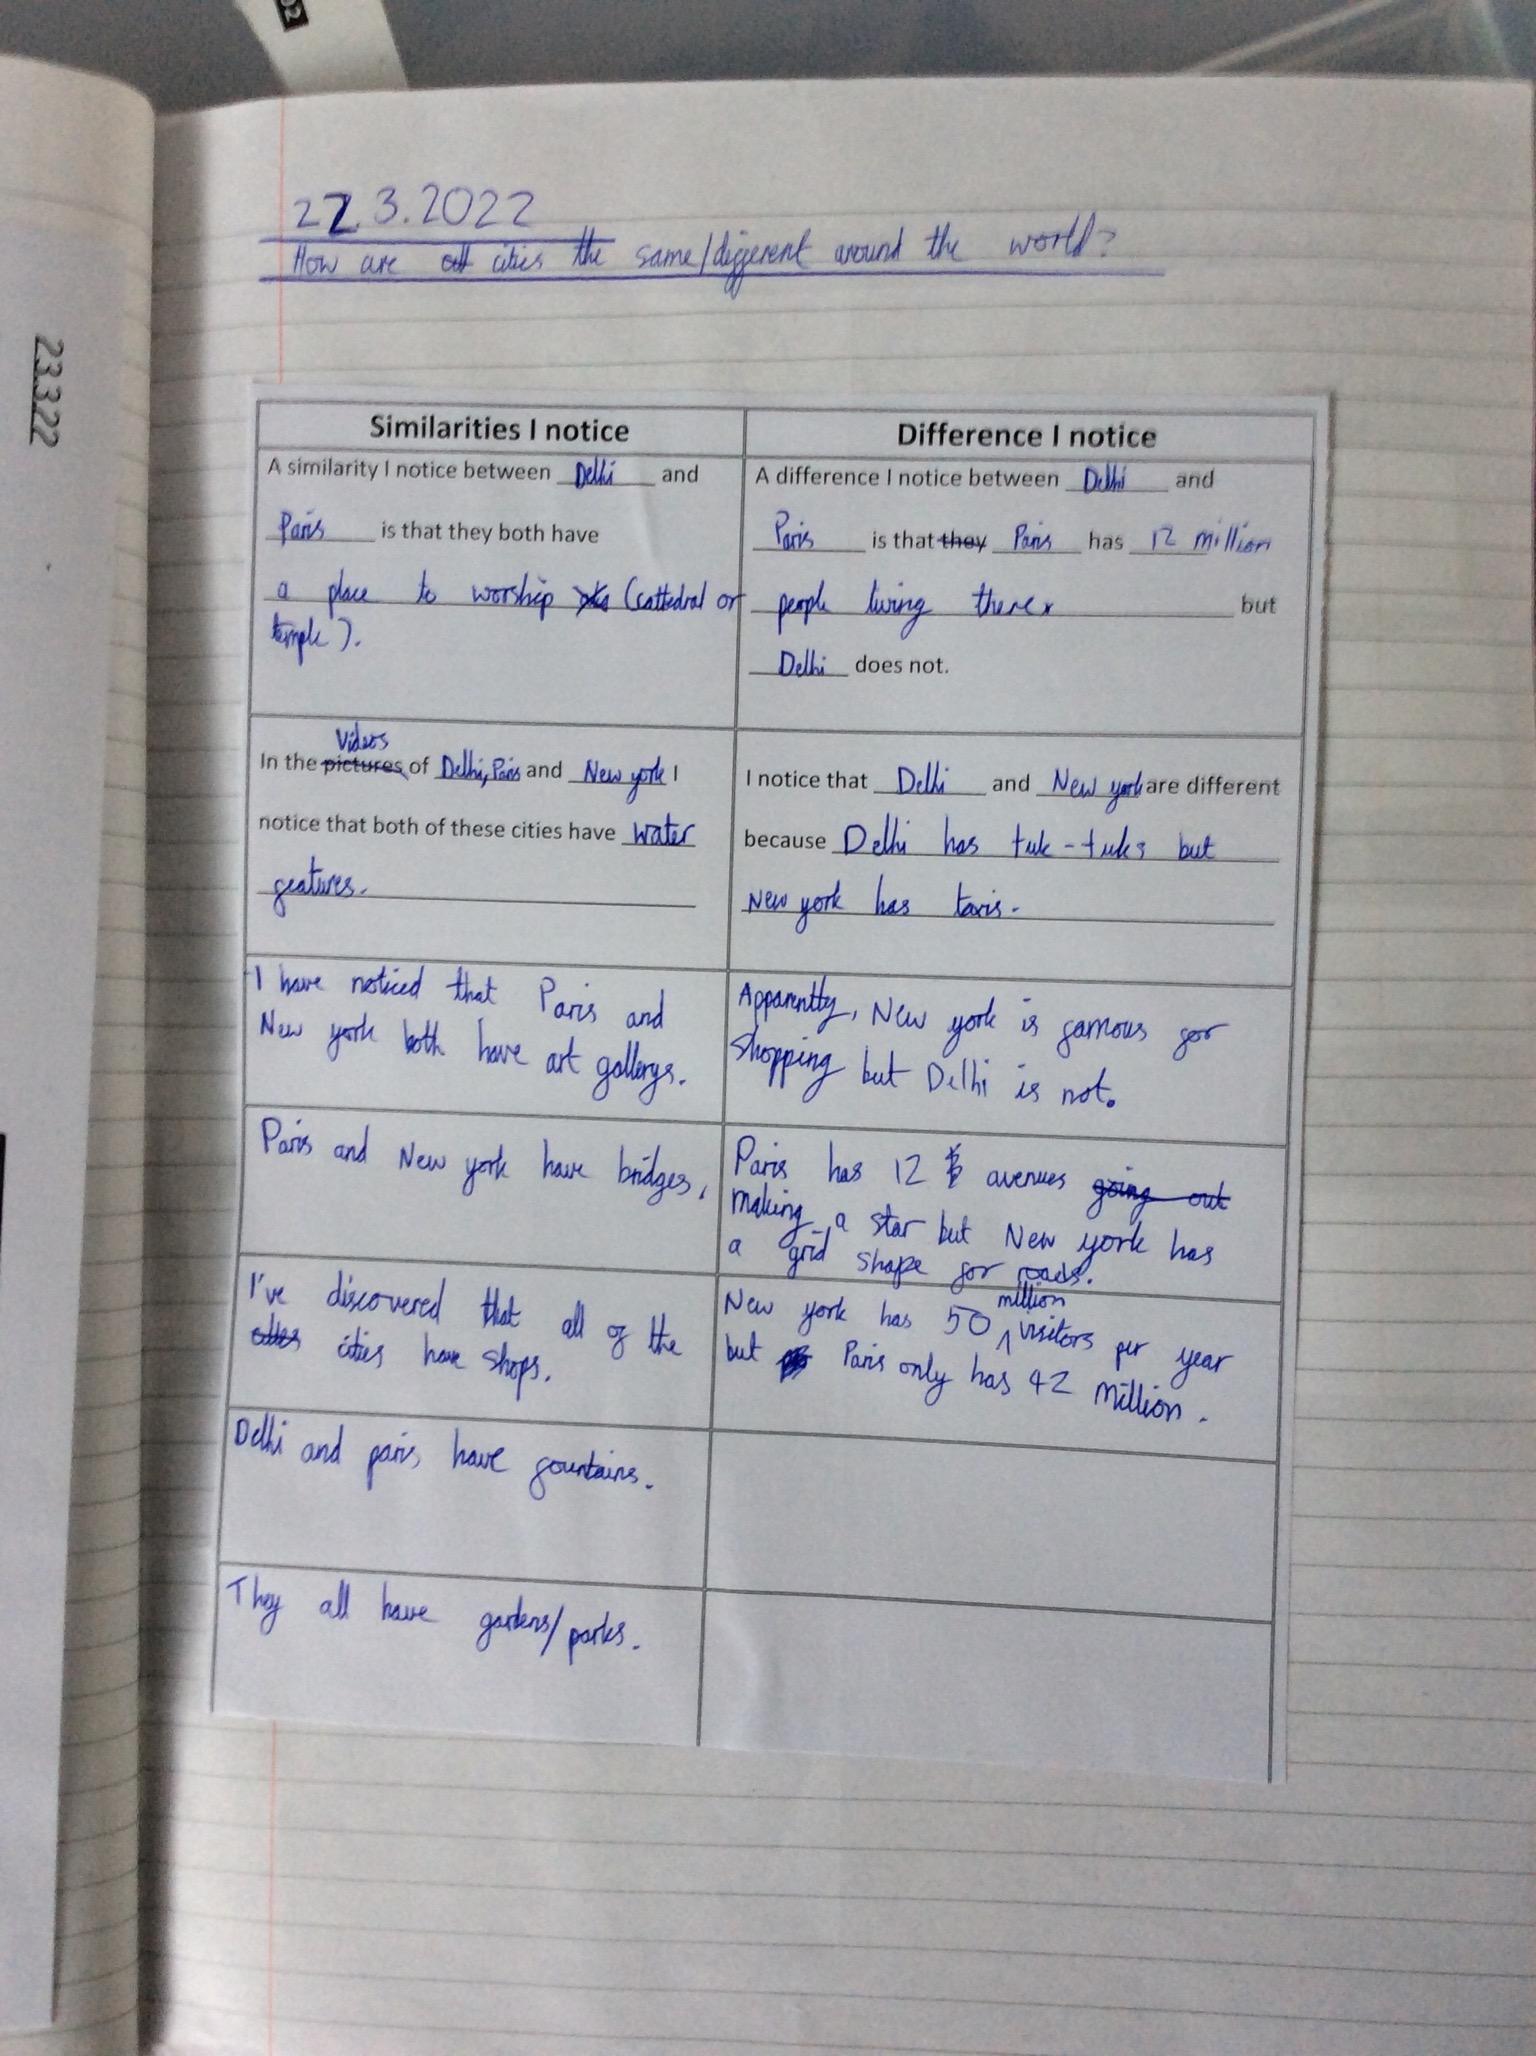 22.3.2022
How are all cities the same/different around the world?
23.3.22
Similarities I notice
A similarity I notice between Delhi and
Paris is that they both have
a place to worship (cattedral or
temple).
Difference I notice
A difference I notice between Delhi and
Paris is that they Paris has 12 million
people living there but
Delhi does not.
Videos
In the pictures of Delhi, Paris and New york I
notice that both of these cities have water
features.
I notice that Delhi and New york are different
because Delhi has tuk-tuks but
New york has taxis.
I have noticed that Paris and
New york both have art gallerys.
Apparently, New york is famous for
shopping but Delhi is not.
Paris and New york have bridges.
Paris has 12 avenues going out
making a star but New york has
a grid shape for roads.
I've discovered that all of the
cities have shops.
New york has 50 million visitors per year
but Paris only has 42 million.
Delhi and paris have fountains.
They all have gardens/parks.